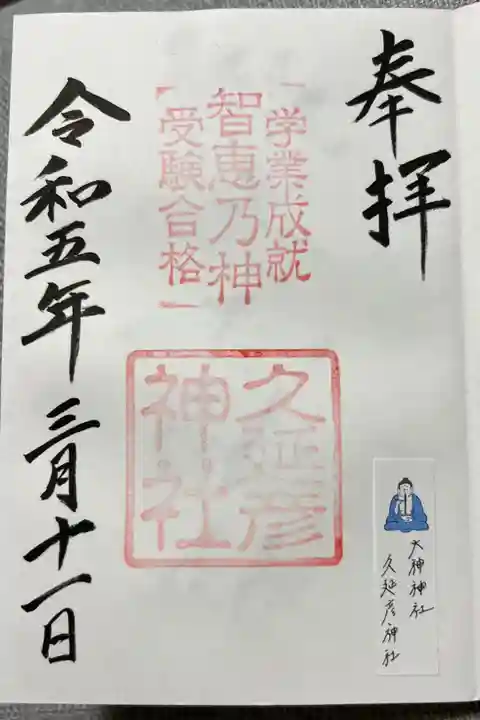 奉拝
学業成就
智恵乃神
受験合格
久延彦
神社
令和五年三月十一日
大神神社
久延彦神社